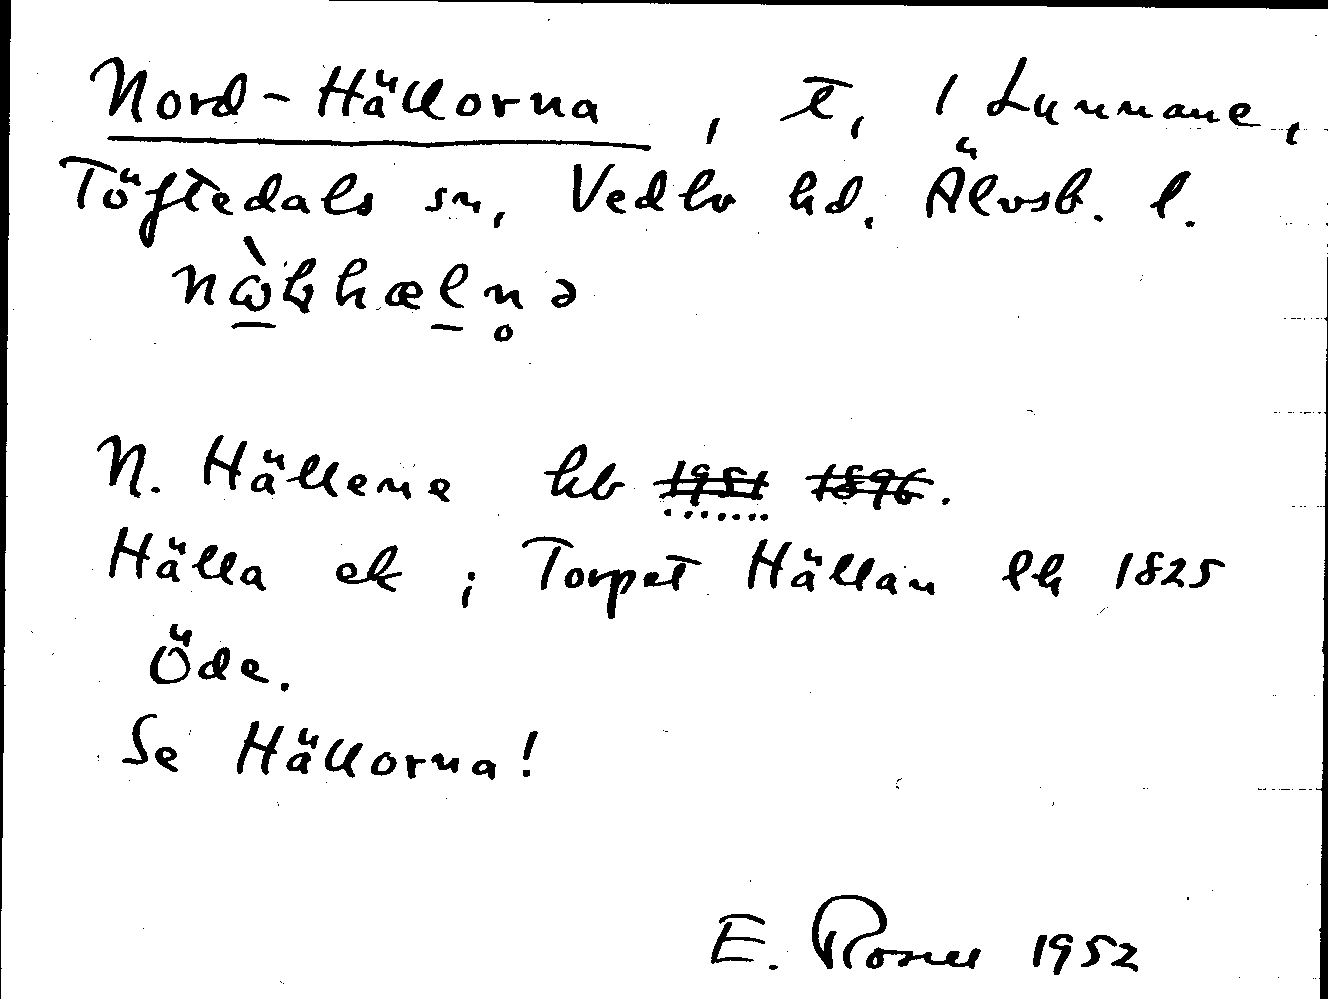 Nord-Hällorna, t, 1 Lunnane,
Töftedals sn, Vedbo hd. Älvsb. l.
N. Hällene kb 1951 1896.
Hälla ek; Torpet Hällan lh 1825
Öde.
Se Hällorna!
E. Rosell 1952